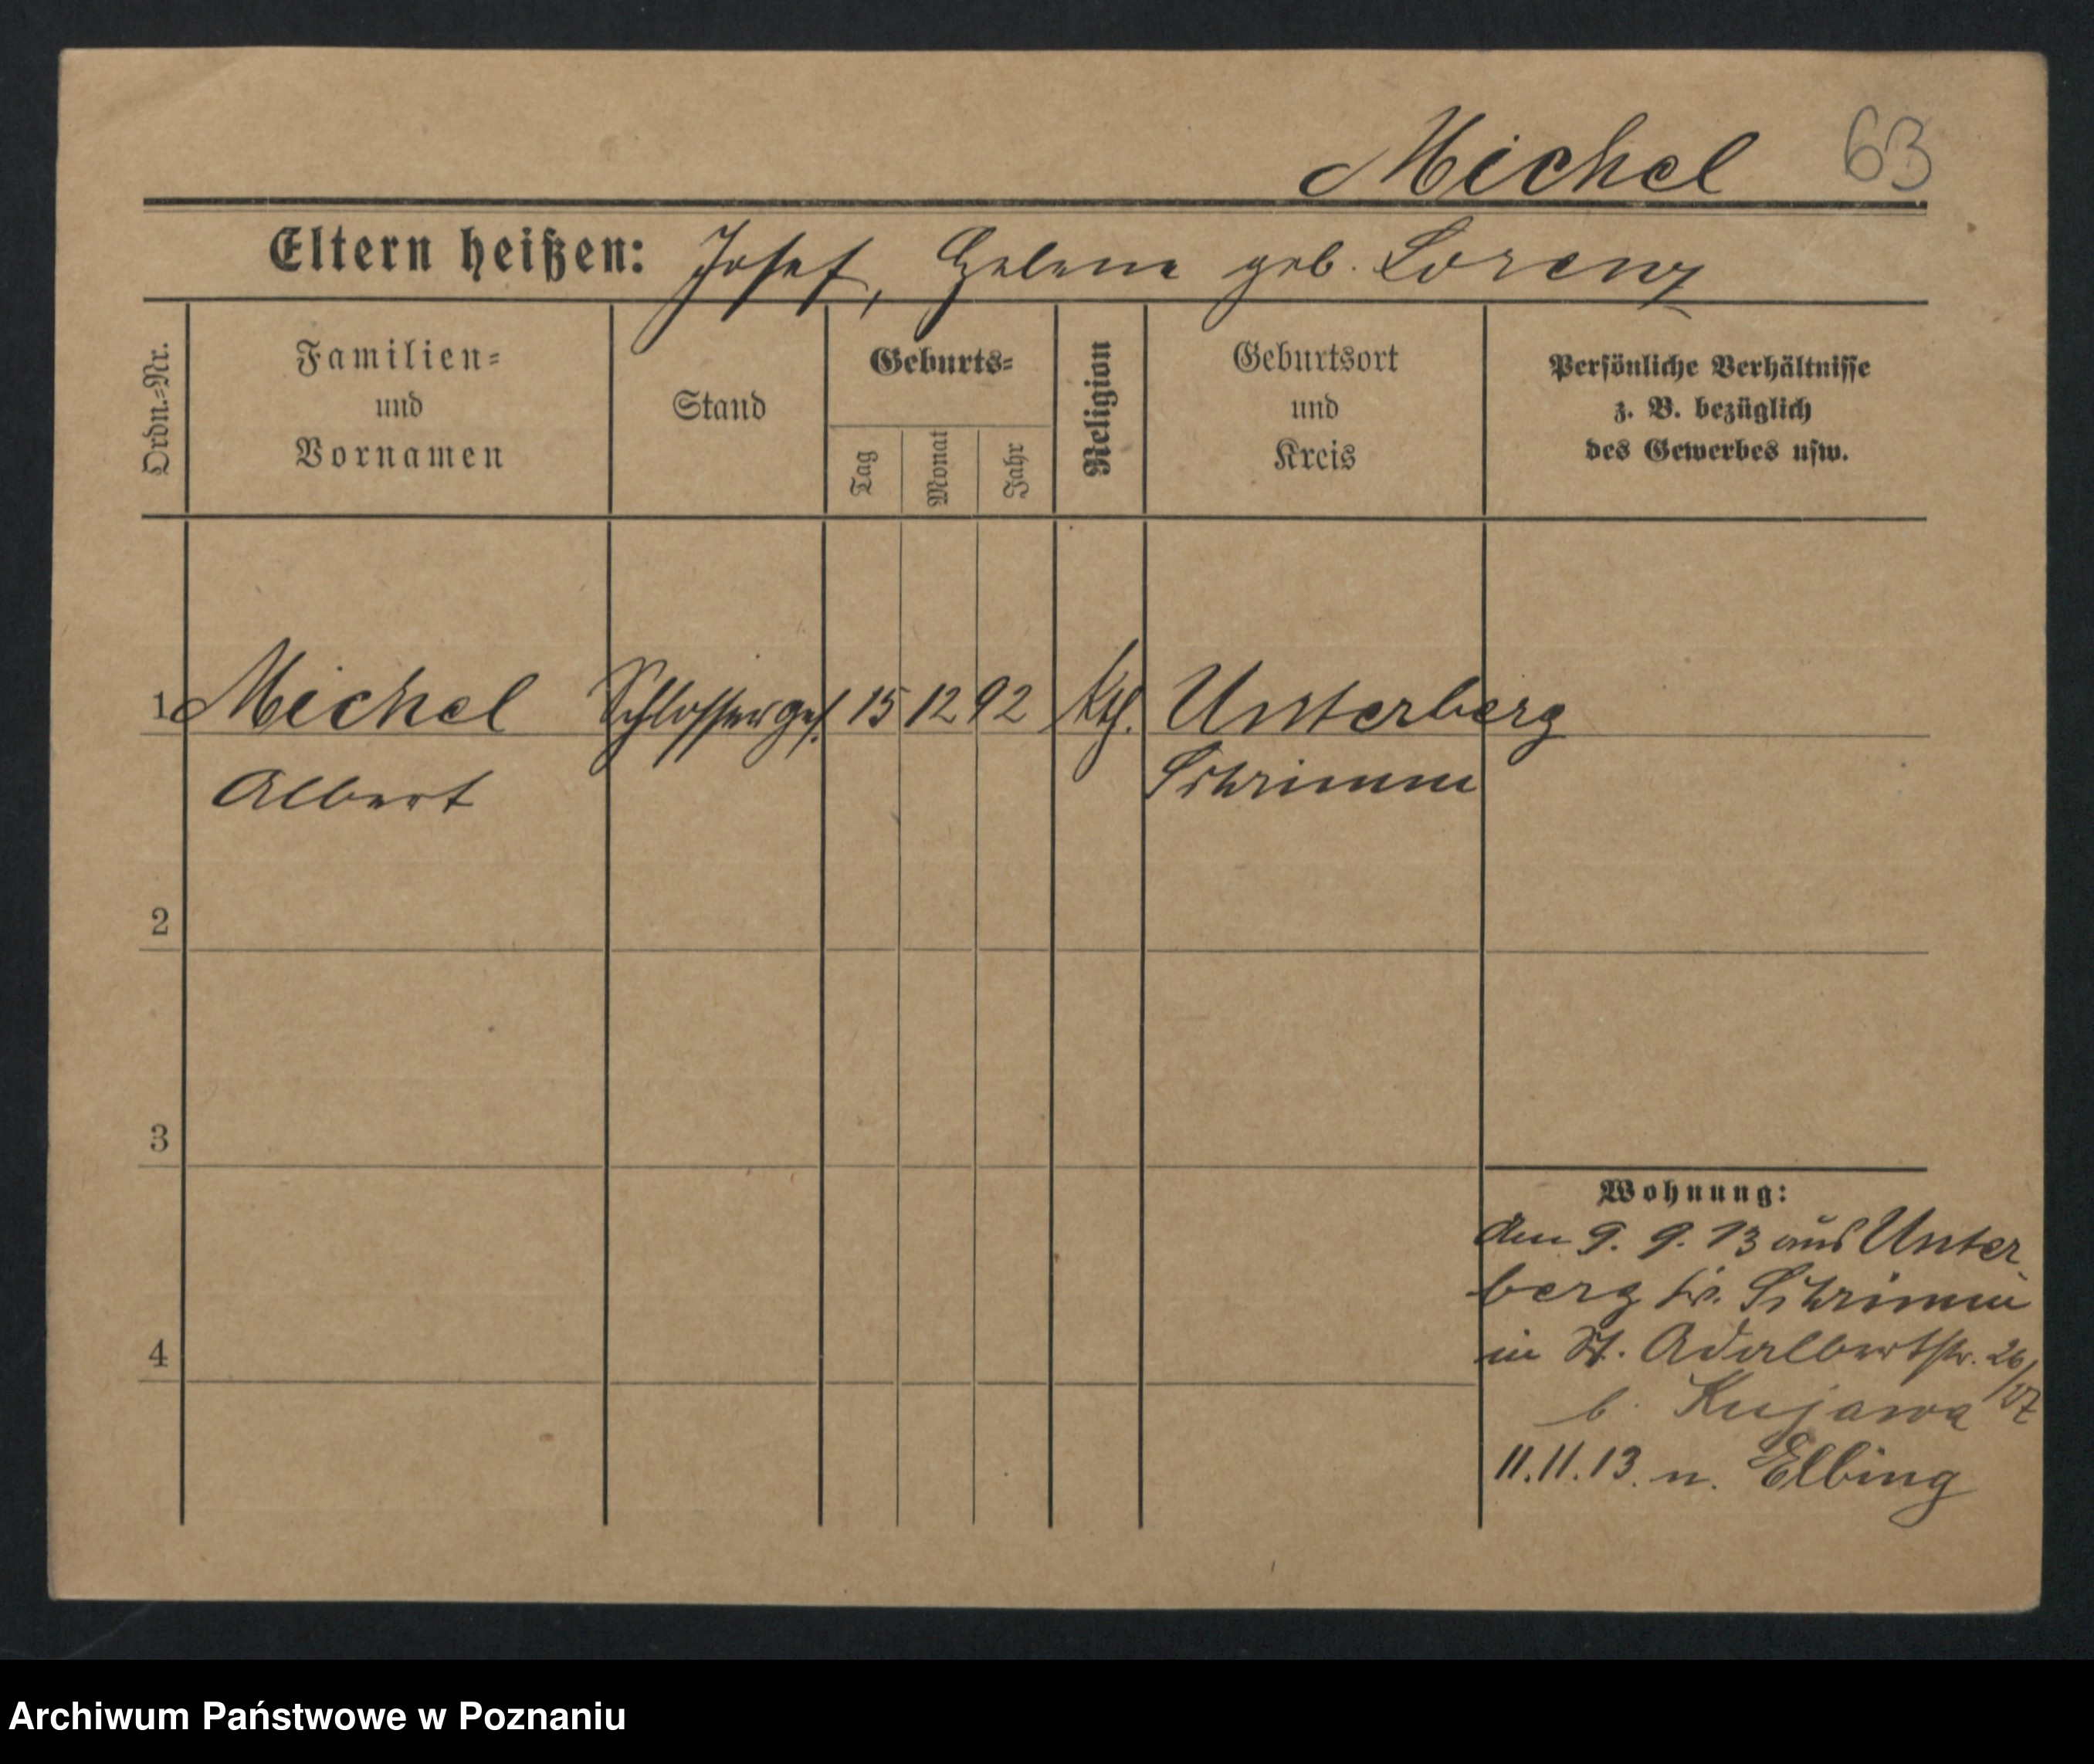 Michel 63
Eltern heißen: Josef, Helene geb. Lorenz
Ordn.=Nr.
Familien=
und
Vornamen
Stand
Geburts=
Tag
Monat
Jahr
Religion
Geburtsort
und
Kreis
Persönliche Verhältnisse
z. B. bezüglich
des Gewerbes usw.
1 Michel Schlosserges. 15 12 92 kth. Unterberg
Albert Schrimm
2
3
4
Wohnung:
den 9. 9. 13 aus Unter
berg kr. Schrimm
in St. Adalbertstr. 26/27
b. Kujawa
11.11.13. n. Elbing
Archiwum Państwowe w Poznaniu